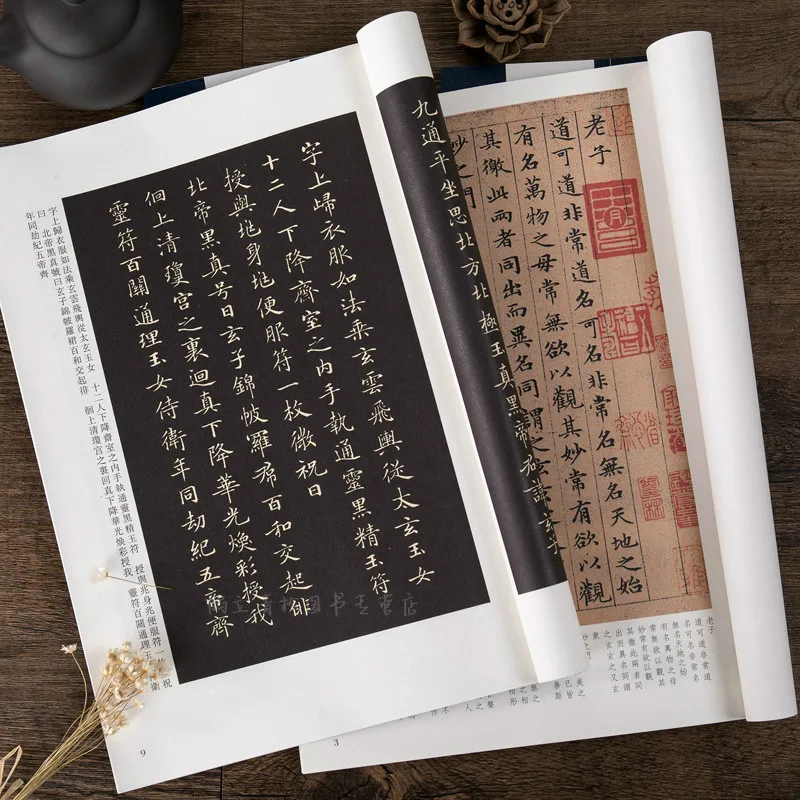 九通平坐思北方北極玉真黑帝
字上㱕衣服如法乘玄雲飛輿從太玄玉女
十二人下降齊室之內手執通靈黑精玉符
授與身便服符一枚微祝曰
北帝黑真号曰玄子錦帔羅帬百和交起俳
佪上清瓊宮之裏迴真下降華光煥彩授我
靈符百關通理玉女侍衛年同劫紀五帝齊
字上歸衣服如法乘玄雲飛輿從太玄玉女 十二人下降齋室之內手執通靈黑精玉符 授與兆身兆便服符一 祝
曰 北帝黑真號曰玄子錦帔羅裙百和交起俳 佪上清瓊宮之裏回真下降華光煥彩授我 靈符百關通理玉 衛
年同劫紀五帝齊
9
老子
道可道非常道名可名非常名無名天地之始
有名萬物之母常無欲以觀其妙常有欲以觀
其徼此兩者同出而異名同謂之
妙之門
老子
道可道非常道
名可名非常名
無名天地之始
有名萬物之母
常無欲以觀其
妙常有欲以觀
其徼此兩者同
出而異名同謂
之玄玄之又玄
衆
3